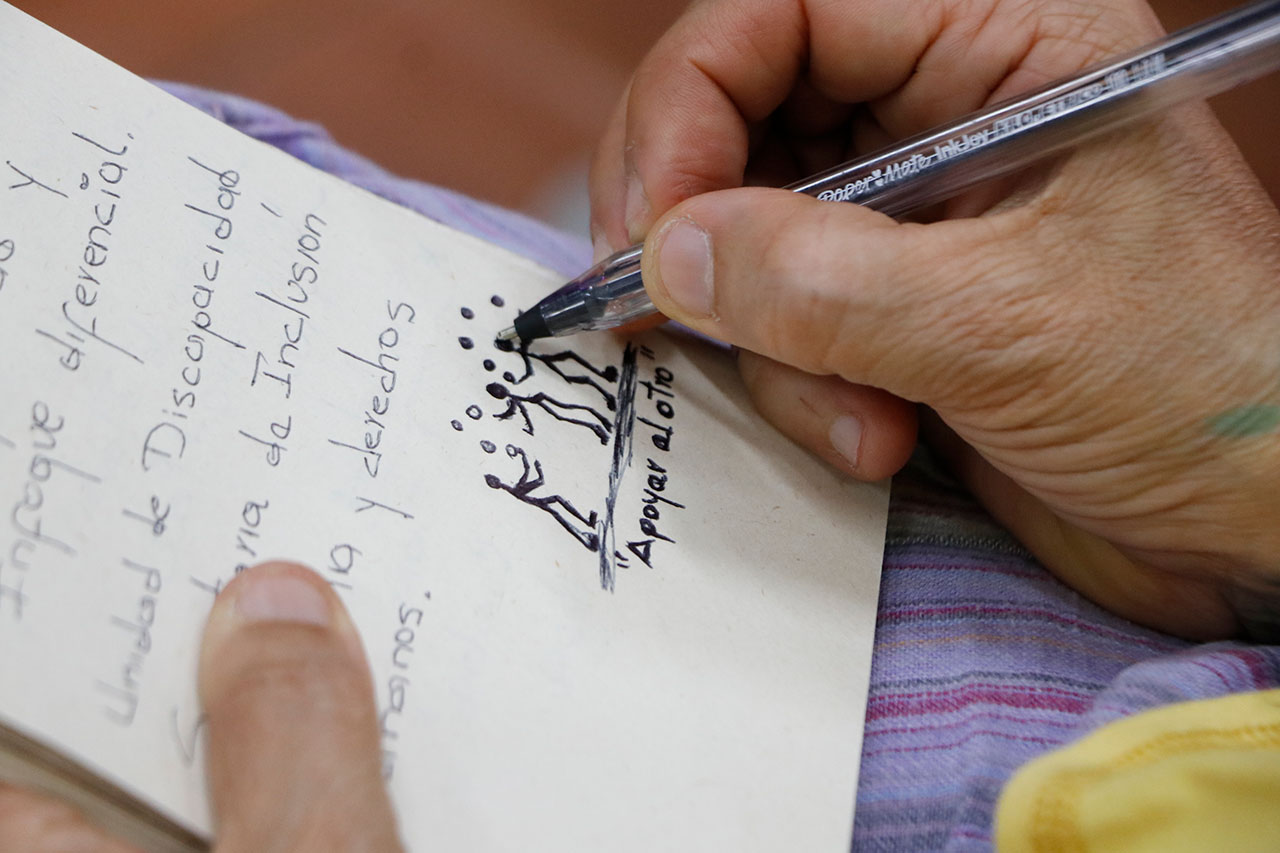 Y
Enfoque diferencial.
Unidad de Discapacidad
de Inclusión
y derechos
"Apoyar al otro"
Paper Mate InkJoy